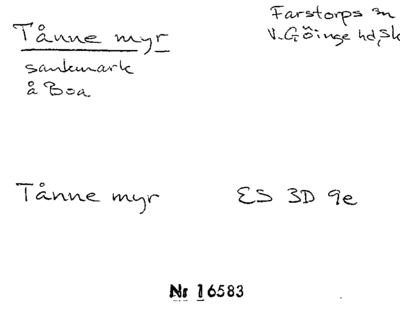 Tånne myr
Farstorps sn
V. Göinge hd, Sk
sankmark
å Boa
Tånne myr
ES 3D 9e
Nr 16583